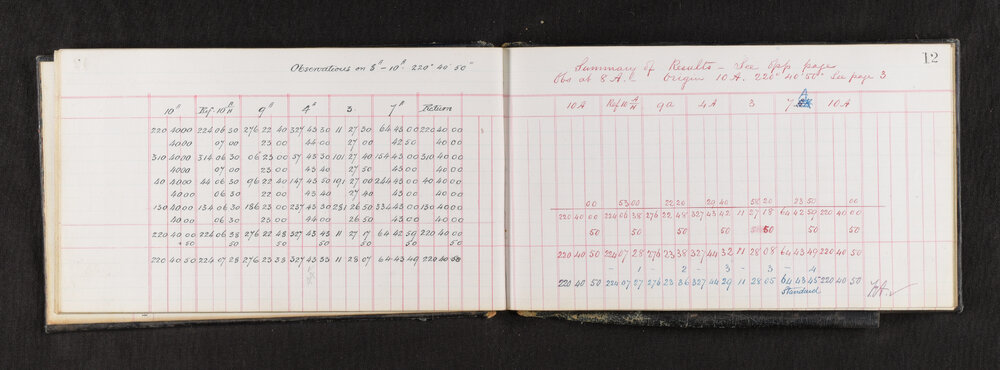 Observations on 8ᴬ – 10ᴬ. 220° 40' 50"
10ᴬ Ref. 10 A/H 9ᴬ 4ᴬ 3. 7ᴬ Return
220 40 00 224 06 50 276 22 40 327 43 30 11 27 30 64 43 00 220 40 00
40 00 07 00 23 00 44 00 27 00 42 50 40 00
310 40 00 314 06 30 06 23 00 57 43 30 101 27 40 154 43 00 310 40 00
40 00 07 00 23 00 43 40 27 50 43 00 40 00
40 40 00 44 06 30 96 22 40 147 43 50 191 27 00 244 43 00 40 40 00
40 00 06 30 22 00 43 40 27 40 43 00 40 00
130 40 00 134 06 30 186 23 00 237 43 30 281 26 50 334 43 00 130 40 00
40 00 06 30 23 00 44 00 26 50 43 00 40 00
220 40 00 224 06 38 276 22 48 327 43 43 11 27 17 64 42 59 220 40 00
+50 50 50 50 50 50 50
220 40 50 224 07 28 276 23 38 327 43 33 11 28 07 64 43 49 220 40 50
12
Summary of Results – See opp page
Obs at 8 A. Origin 10 A. 220° 40' 50" See page 3
10 A Ref 10 A/H 9a 4A 3 7 A 10 A
00 53 00 22 20 29 40 58 20 23 50 00
220 40 00 224 06 38 276 22 48 327 43 42 11 27 18 64 42 59 220 40 00
50 50 50 50 50 50 50
220 40 50 224 07 28 276 23 38 327 44 32 11 28 08 64 43 49 220 40 50
– 1 – 2 – 3 – 3 – 4
220 40 50 224 07 27 276 23 36 327 44 29 11 28 05 64 43 45 220 40 50
Standard